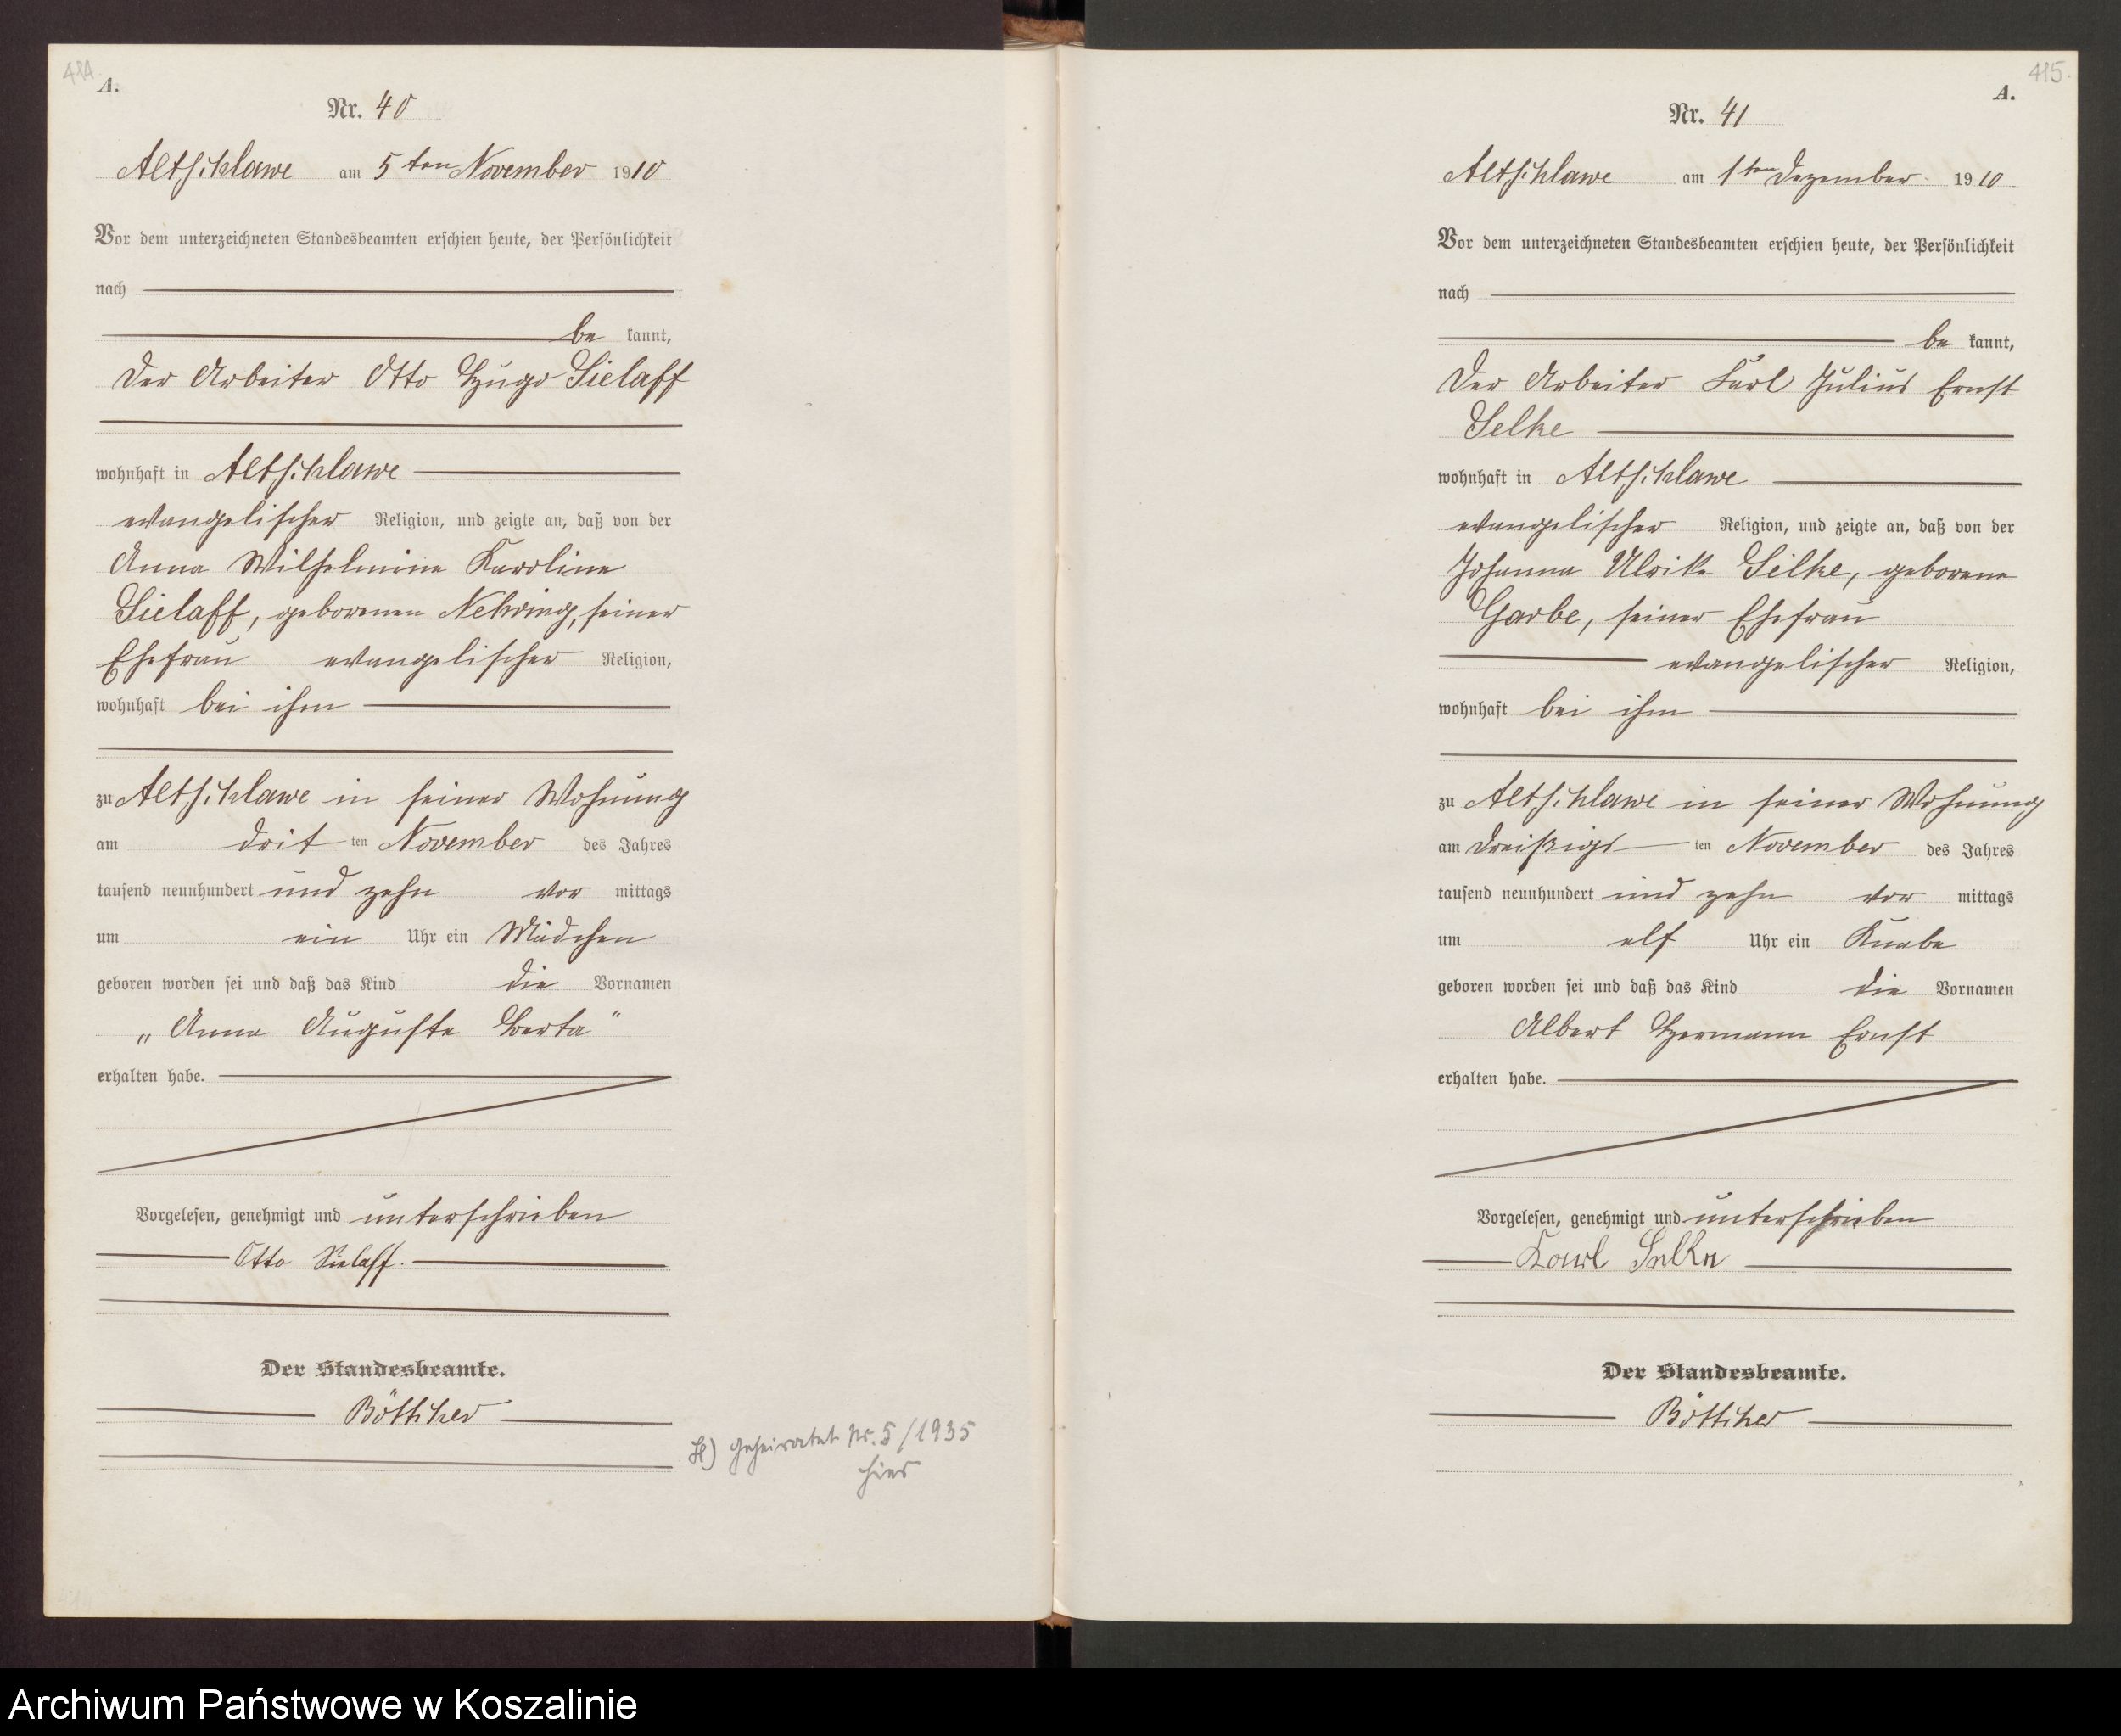 414.
A.
Nr. 40
Altschlawe am 5ten November 1910
Vor dem unterzeichneten Standesbeamten erschien heute, der Persönlichkeit
nach
be kannt,
der Arbeiter Otto Hugo Sielaff
wohnhaft in Altschlawe
evangelischer Religion, und zeigte an, daß von der
Anna Wilhelmine Karoline
Sielaff, geborenen Nehring, seiner
Ehefrau evangelischer Religion,
wohnhaft bei ihm
zu Altschlawe in seiner Wohnung
am drit ten November des Jahres
tausend neunhundert und zehn vor mittags
um ein Uhr ein Mädchen
geboren worden sei und daß das Kind die Vornamen
„Anna Auguste Berta“
erhalten habe.
Vorgelesen, genehmigt und unterschrieben
Otto Sielaff.
Der Standesbeamte.
Böttcher
geheiratet Nr. 5/1935
hier
415.
A.
Nr. 41
Altschlawe am 1ten Dezember 1910
Vor dem unterzeichneten Standesbeamten erschien heute, der Persönlichkeit
nach
be kannt,
der Arbeiter Karl Julius Ernst
Selke
wohnhaft in Altschlawe
evangelischer Religion, und zeigte an, daß von der
Johanna Ulrike Selke, geborene
Garbe, seiner Ehefrau
evangelischer Religion,
wohnhaft bei ihm
zu Altschlawe in seiner Wohnung
am dreißigs ten November des Jahres
tausend neunhundert und zehn vor mittags
um elf Uhr ein Knabe
geboren worden sei und daß das Kind die Vornamen
Albert Hermann Ernst
erhalten habe.
Vorgelesen, genehmigt und unterschrieben
Karl Selke
Der Standesbeamte.
Böttcher
Archiwum Państwowe w Koszalinie